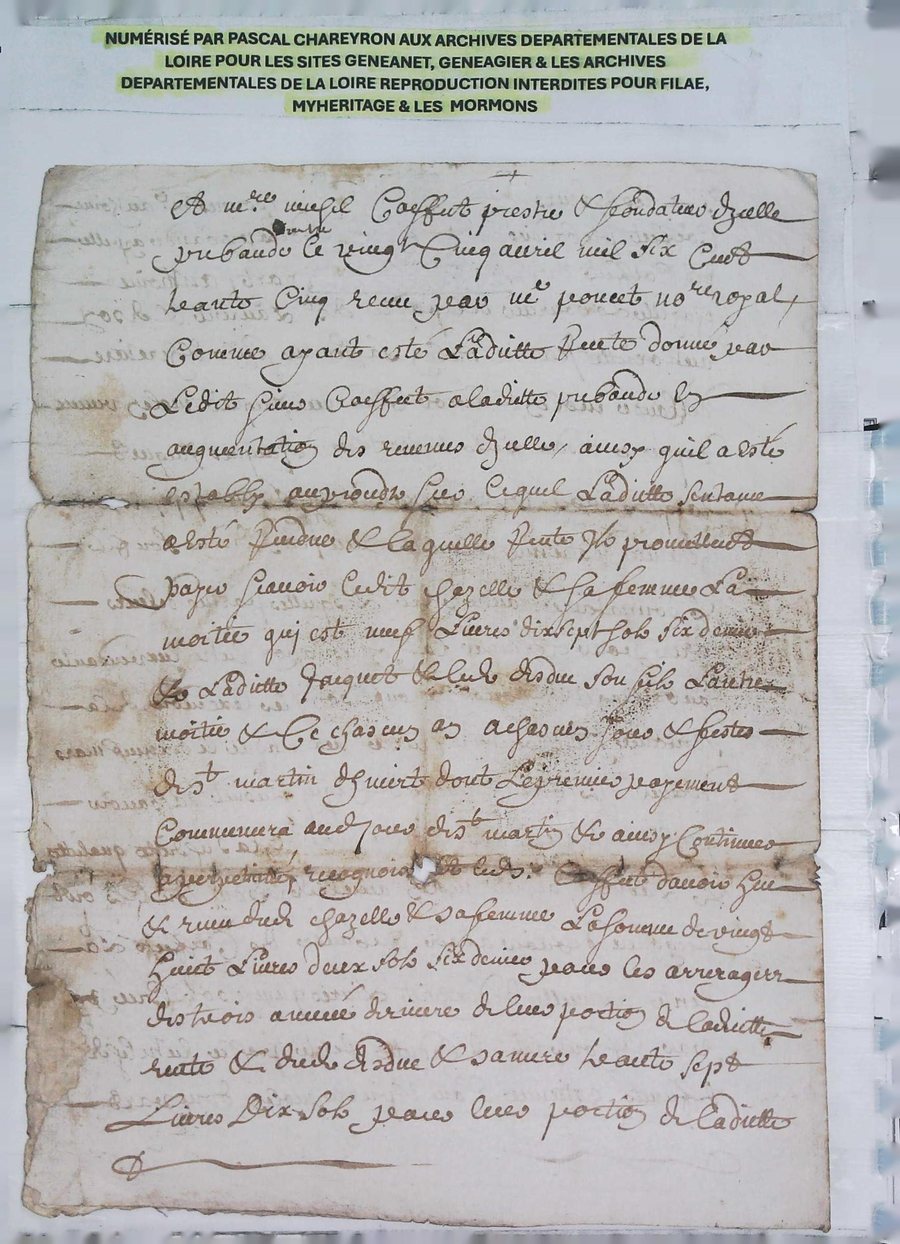 NUMÉRISÉ PAR PASCAL CHAREYRON AUX ARCHIVES DEPARTEMENTALES DE LA
LOIRE POUR LES SITES GENEANET, GENEAGIER & LES ARCHIVES
DEPARTEMENTALES DE LA LOIRE REPRODUCTION INTERDITES POUR FILAE,
MYHERITAGE & LES MORMONS
et mre michel Coeffect prestre & fondateur dycelle
prebande le vingt Cinq auril mil six Cent
trante Cinq receu par me poncet nore royal
Comme ayant esté Laditte rente donné par
Ledit sieur Coeffect a laditte prebande En
augmentation des reuenus dycelle, ainsy quil a esté
establly Lequel Laditte
a esté & laquelle rente Ils promettent
payer scauoir Ledit chazelle & sa femme La
moitié qui est neuf Liures dix sept sols six deniers
& Laditte Jacquet & son fils Lautre
moitié & Ce chascun an a chascun jour & festes
de st martin dhiuert dont Le premier payement
Commencera audt jour de st martin & ainsy Continuer
a perpetuité, recognoissant led. Coeffect dauoir heu
& receu dud chazelle & sa femme La somme de vingt
huict Liures deux sols six deniers pour les arrerages
des trois année derniere de leur portion de laditte
rente & dud & sa mere trante sept
Liures Dix sols pour leur portion de laditte